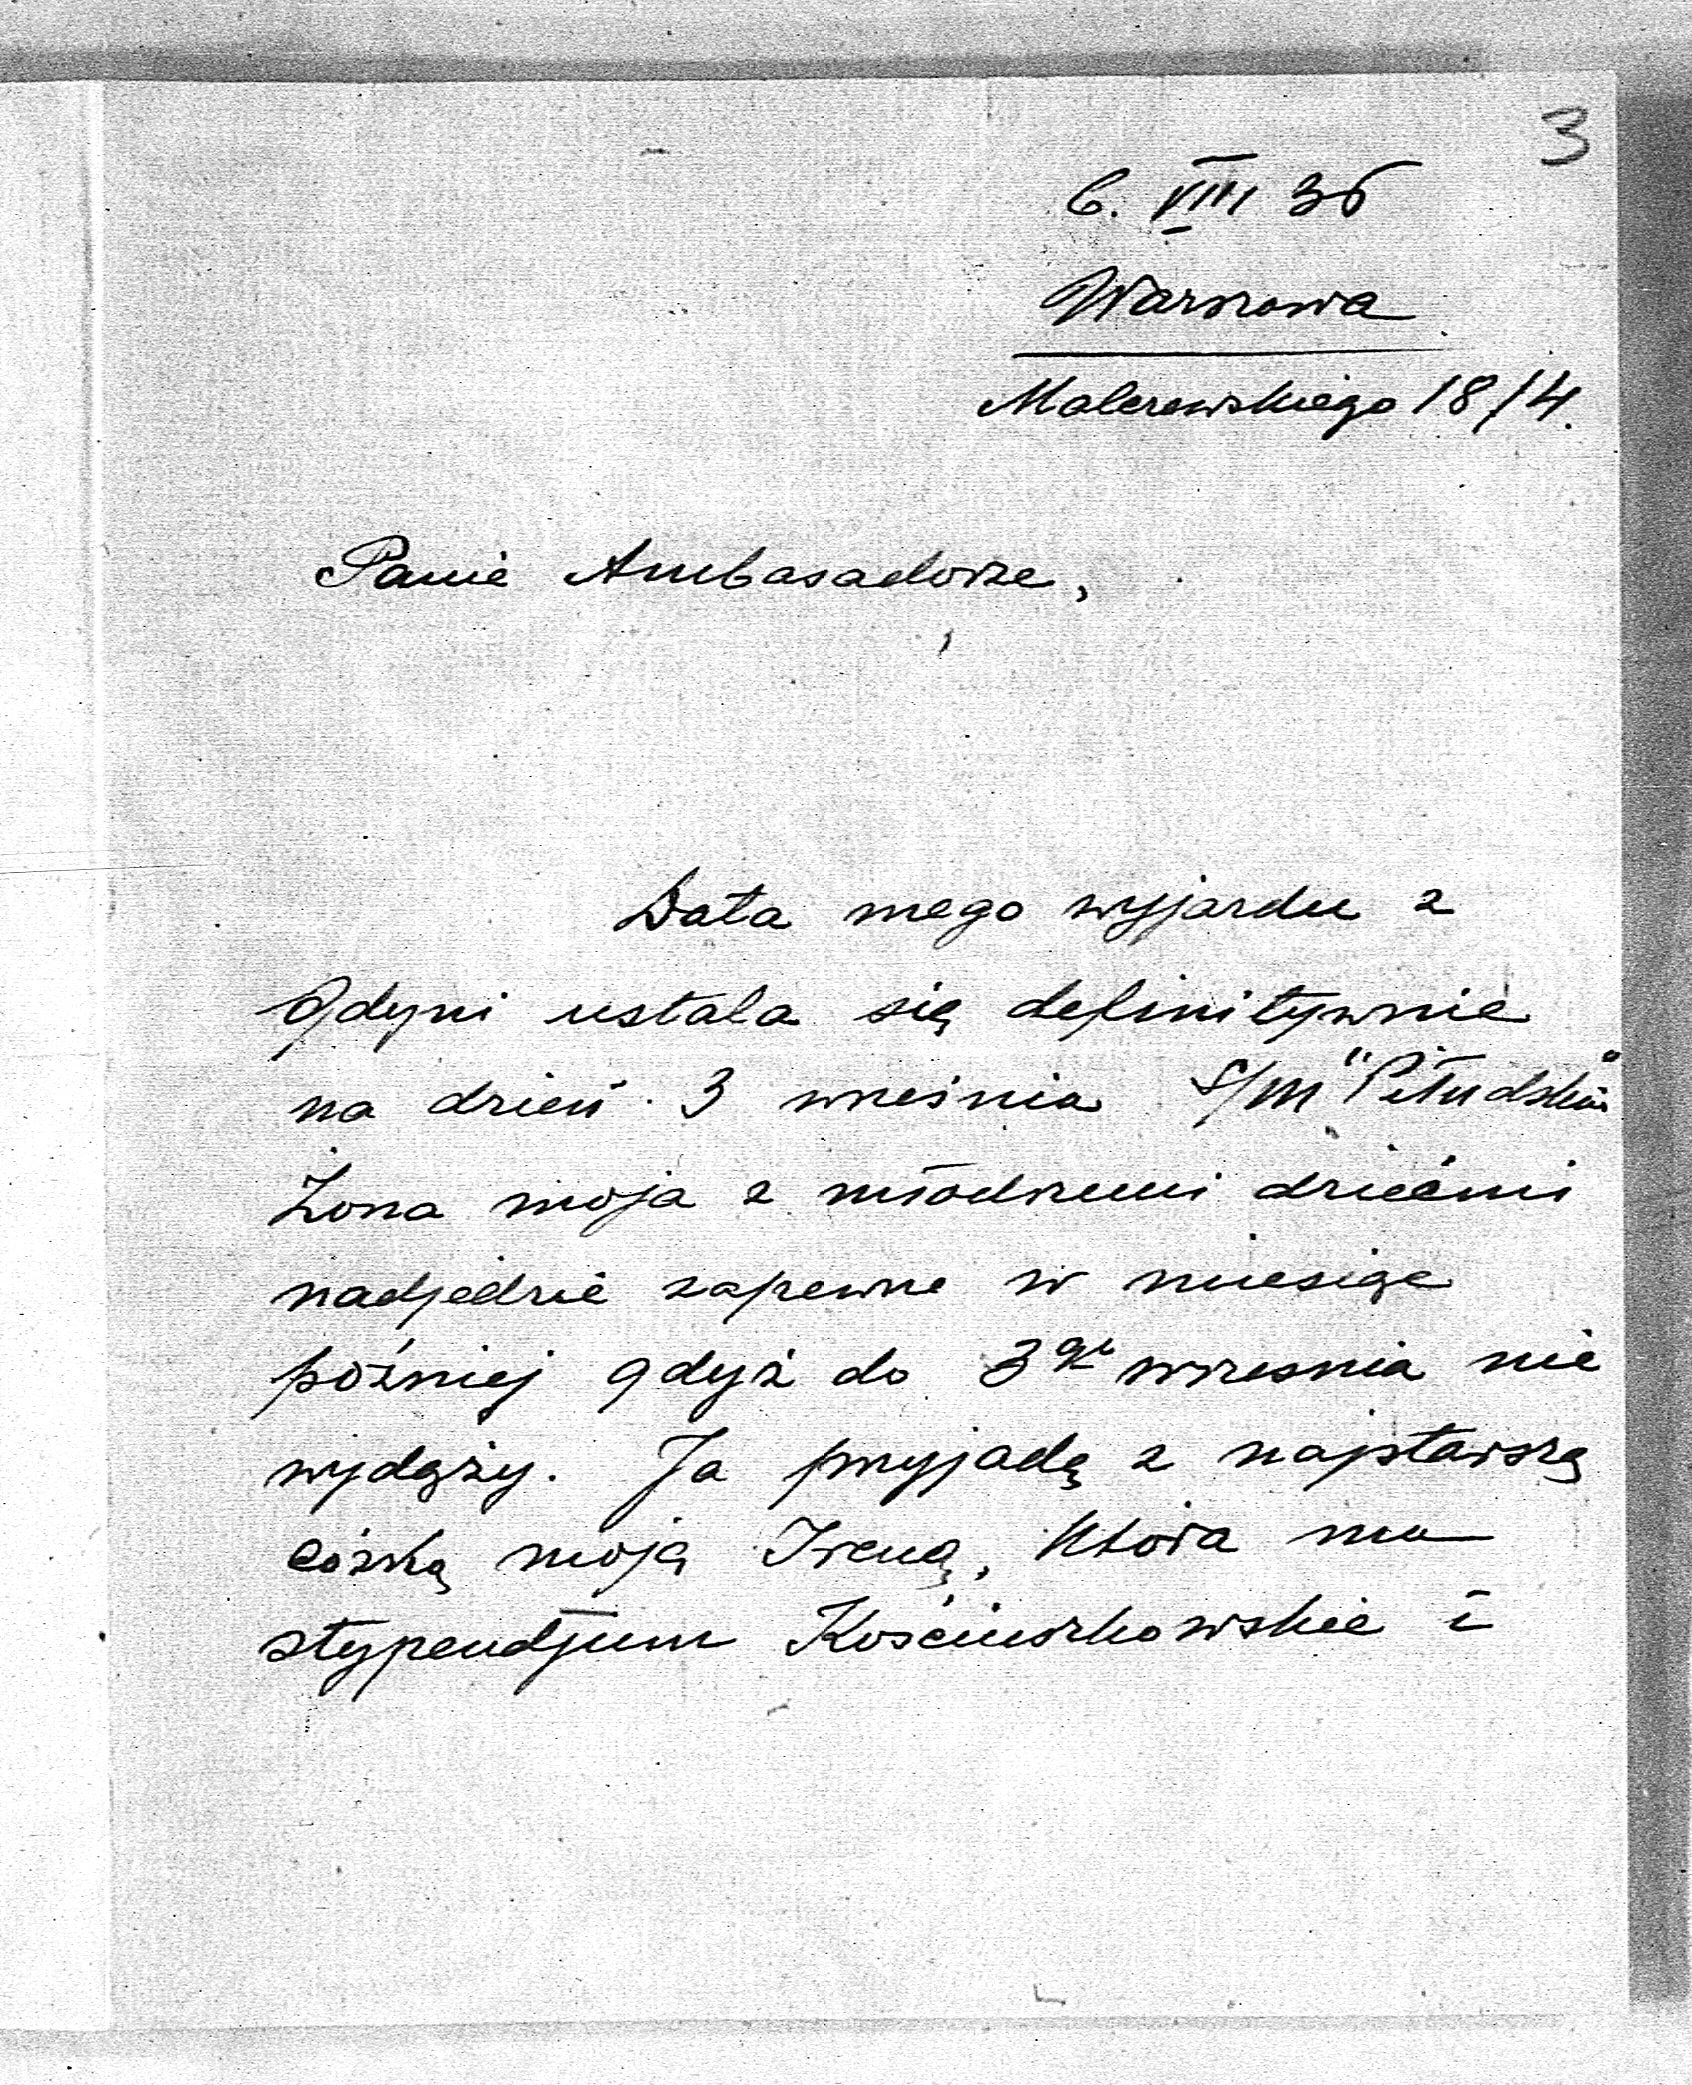 3
6. VIII 36
Warszawa
Malczewskiego 18/4.
Panie Ambasadorze,
Data mego wyjazdu z
Gdyni ustala się definitywnie
na dzień 3 września s/m "Piłsudskim"
Żona moja z młodszemi dziećmi
nadjedzie zapewne w miesiąc
później gdyż do 3go września nie
wydąży. Ja przyjadę z najstarszą
córką moją Ireną, która ma
stypendjum Kościuszkowskie i